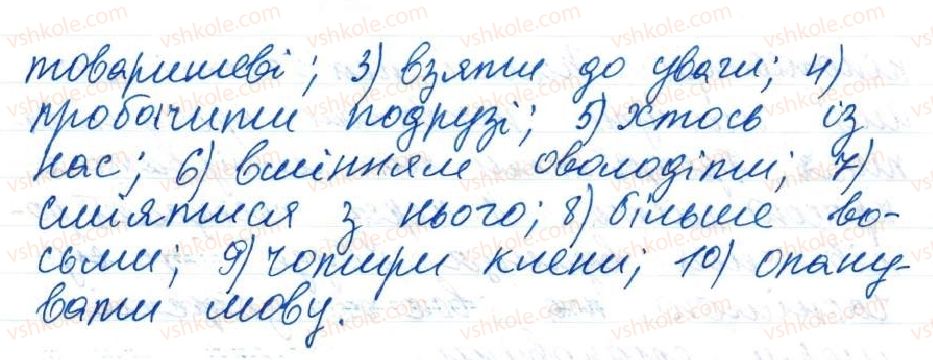 товаришеві; 3) взяти до уваги; 4)
пробачити подрузі; 5) хтось із
нас; 6) вмінням оволодіти; 7)
сміятися з нього; 8) більше во-
сьми; 9) чотири клени; 10) опану-
вати мову.